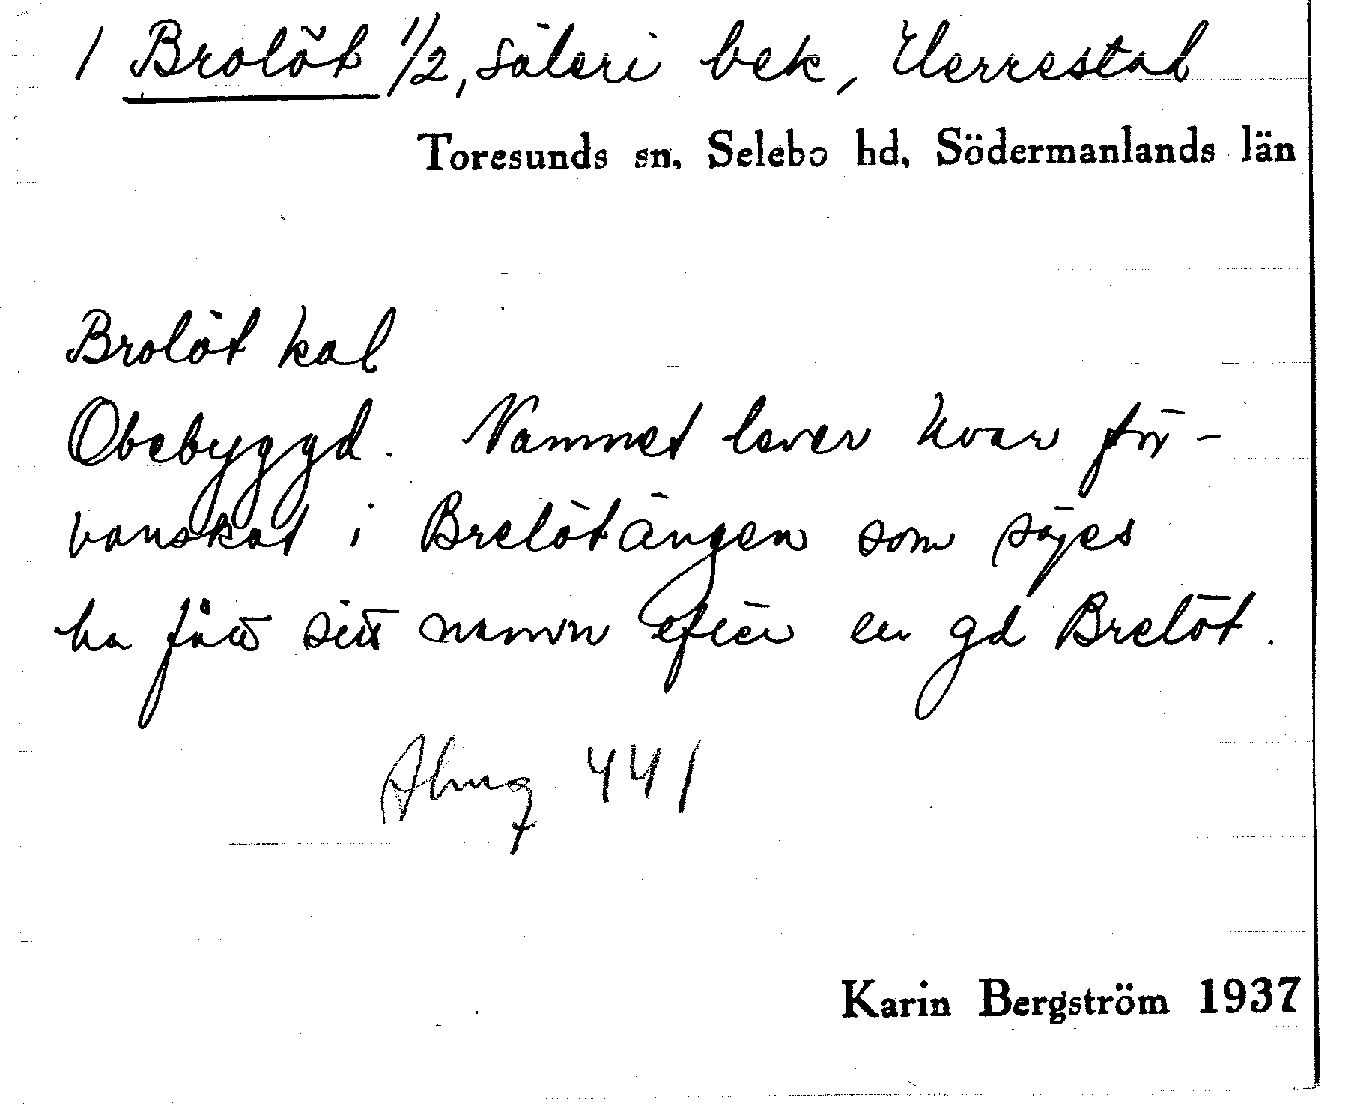 1 Brolöt 1/2, säteri bek, Herrestab
Toresunds sn. Selebo hd. Södermanlands län
Brolöt kal
Obebyggd. Namnet lever kvar för-
vanskat i Brelötängen som säges
ha fått sitt namn efter en gd Brelöt.
441
Karin Bergström 1937